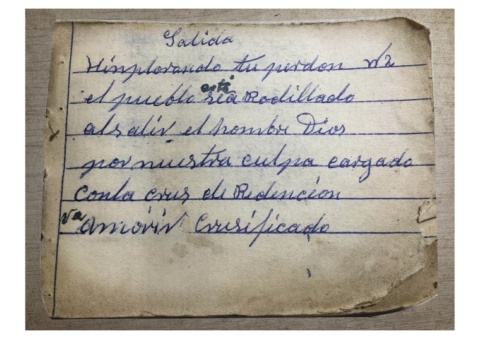 Salida
Hinplorando tu perdon
el pueblo está Rodillado
al salir el hombre Dios
por nuestra culpa cargado
Conla crus de Redencion
va amorir Crusificado